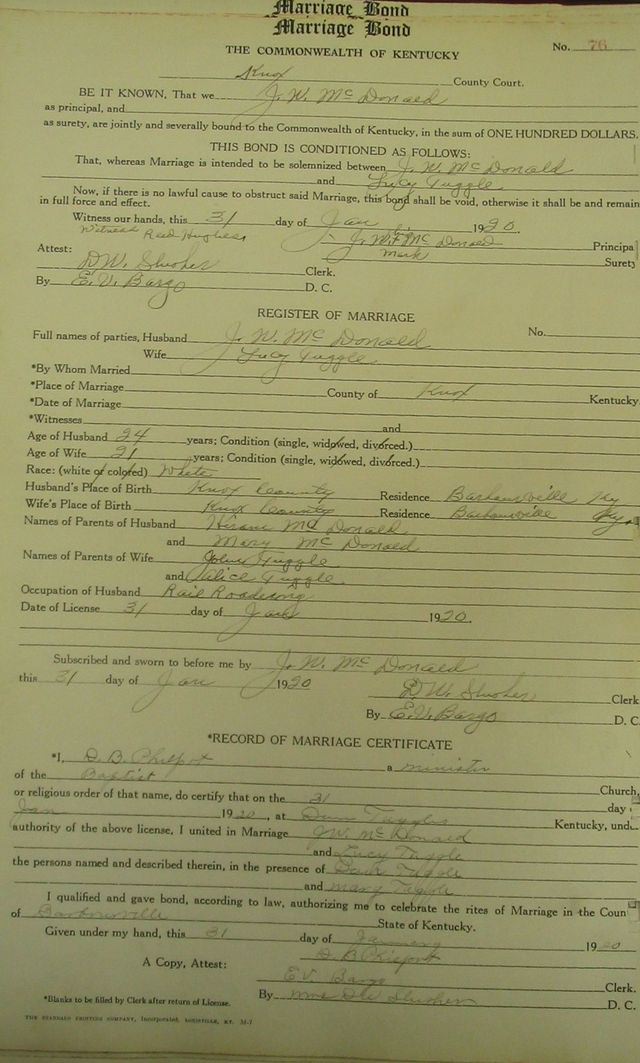 Marriage Bond
Marriage Bond
THE COMMONWEALTH OF KENTUCKY
No. 76
Knox County Court.
BE IT KNOWN, That we J. W. McDonald
as principal, and
as surety, are jointly and severally bound to the Commonwealth of Kentucky, in the sum of ONE HUNDRED DOLLARS.
THIS BOND IS CONDITIONED AS FOLLOWS:
That, whereas Marriage is intended to be solemnized between J. W. McDonald
and Lucy Tuggle
Now, if there is no lawful cause to obstruct said Marriage, this bond shall be void, otherwise it shall be and remain
in full force and effect.
Witness our hands, this 31 day of Jan 1920.
Witness Reed Hughes J. W. + McDonald Principa
mark Surety
Attest:
D. W. Slusher Clerk.
By E. V. Bargo D. C.
REGISTER OF MARRIAGE
Full names of parties, Husband J. W. McDonald No.
Wife Lucy Tuggle
*By Whom Married
*Place of Marriage County of Knox Kentucky
*Date of Marriage
*Witnesses and
Age of Husband 24 years; Condition (single, widowed, divorced.)
Age of Wife 21 years; Condition (single, widowed, divorced.)
Race: (white or colored) White
Husband's Place of Birth Knox County Residence Barbourville Ky
Wife's Place of Birth Knox County Residence Barbourville Ky.
Names of Parents of Husband Hiram McDonald
and Mary McDonald
Names of Parents of Wife John Tuggle
and Alice Tuggle
Occupation of Husband Rail Roadering
Date of License 31 day of Jan 1920.
Subscribed and sworn to before me by J. W. McDonald
this 31 day of Jan 1920
D. W. Slusher Clerk
By E. V. Bargo D. C.
*RECORD OF MARRIAGE CERTIFICATE
*I, D. B. Philpot a minister
of the Baptist Church,
or religious order of that name, do certify that on the 31 day
Jan 1920, at Tuggles Kentucky, und
authority of the above license, I united in Marriage J W. McDonald
and Lucy Tuggle
the persons named and described therein, in the presence of Tuggle
and Mary Tuggle
I qualified and gave bond, according to law, authorizing me to celebrate the rites of Marriage in the Coun
of Barbourville State of Kentucky.
Given under my hand, this 31 day of January 1920
D B Philpot
A Copy, Attest:
E V. Bargo Clerk.
*Blanks to be filled by Clerk after return of License.
By Mrs Slusher D. C.
THE STANDARD PRINTING COMPANY, Incorporated, LOUISVILLE, KY. M-7